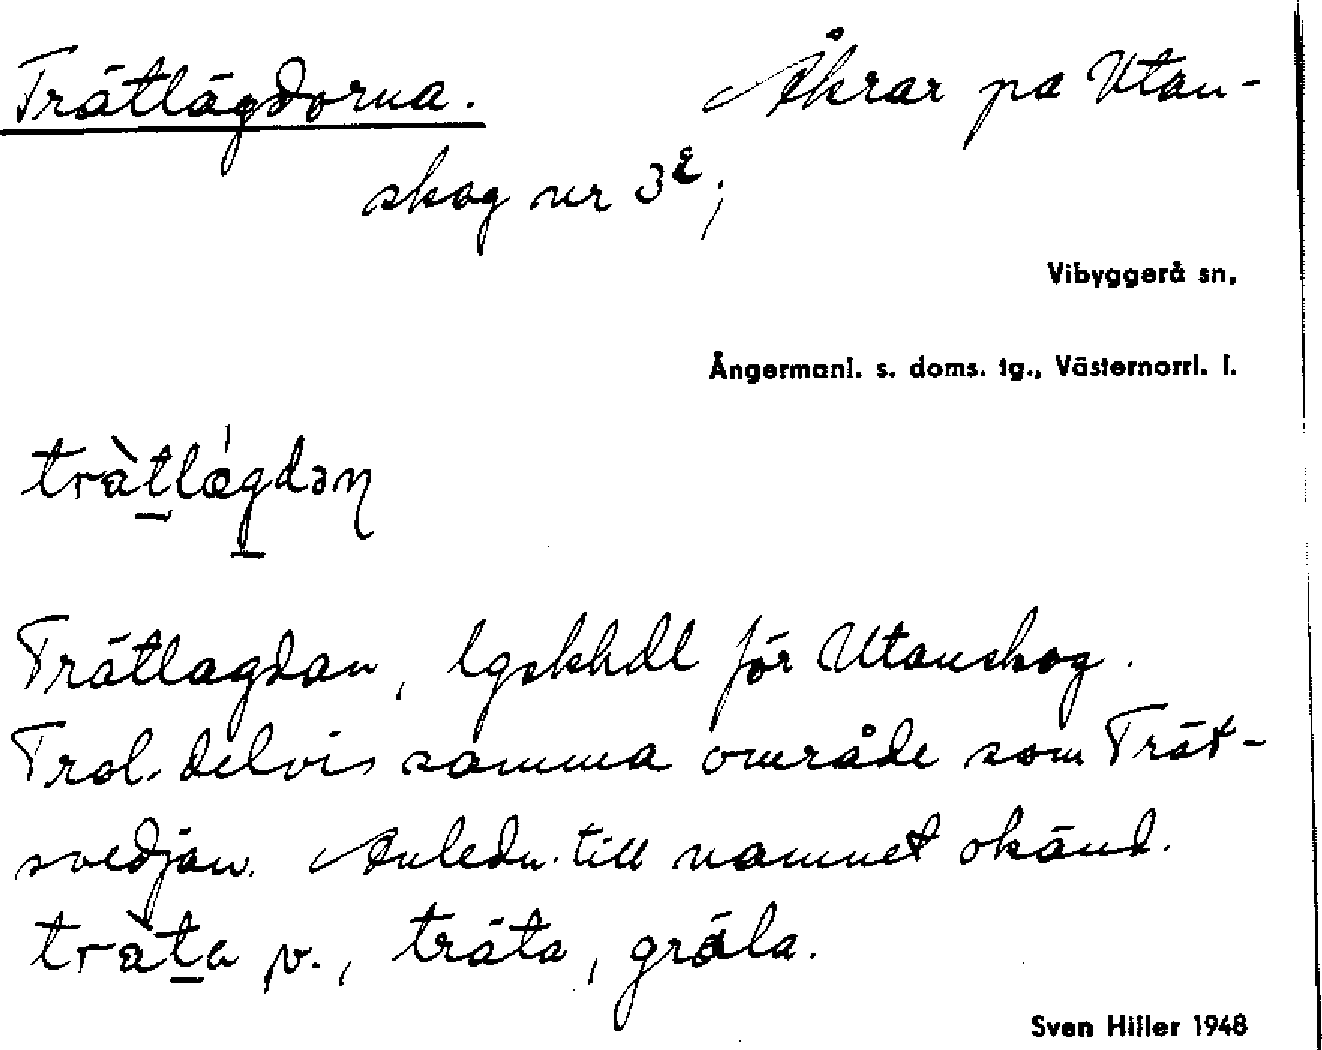 Trätlägdorna. Åkrar på Utan-
skog nr 3²;
Vibyggerå sn,
Ångermanl. s. doms. tg., Västernorrl. l.
tràt̲lǽg̲dəɳ
Trätlagdan, lgskhdl för Utanskog.
Trol. delvis samma område som Trät-
svedjan. Anledn. till namnet okänd.
tràt̲a v., träta, gräla.
Sven Hiller 1948